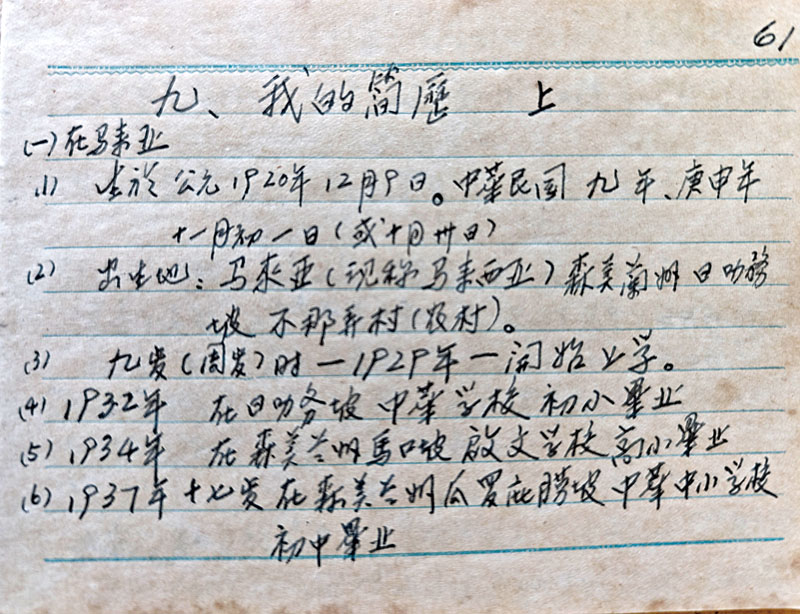 61
九、我的简歷 上
(一)在马来亚
(1) 生於公元1920年12月9日。中華民国九年、庚申年
十一月初一日(或十月卅日)
(2) 出生地：马来亚(现称马来西亚)森美蘭州日叻務
坡不那弄村(农村)。
(3) 九岁(周岁)时—1929年—開始上学。
(4) 1932年 在日叻务坡中華学校初小畢业
(5) 1934年 在森美兰州馬口坡啟文学校高小畢业
(6) 1937年十七岁在森美兰州瓜罗庇朥坡中華中小学校
初中畢业